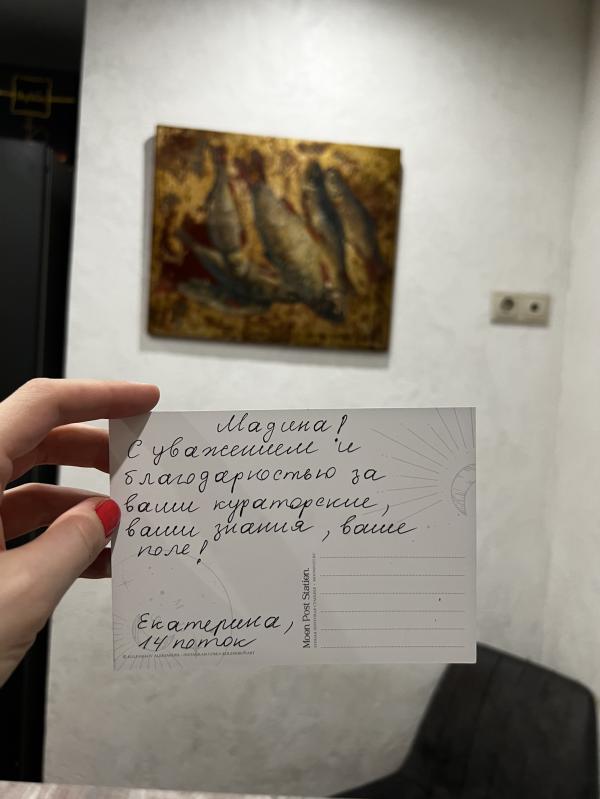 Мадина!
С уважением и
благодарностью за
ваши кураторские,
ваши знания, ваше
поле!
Екатерина,
14 поток
Moon Post Station.